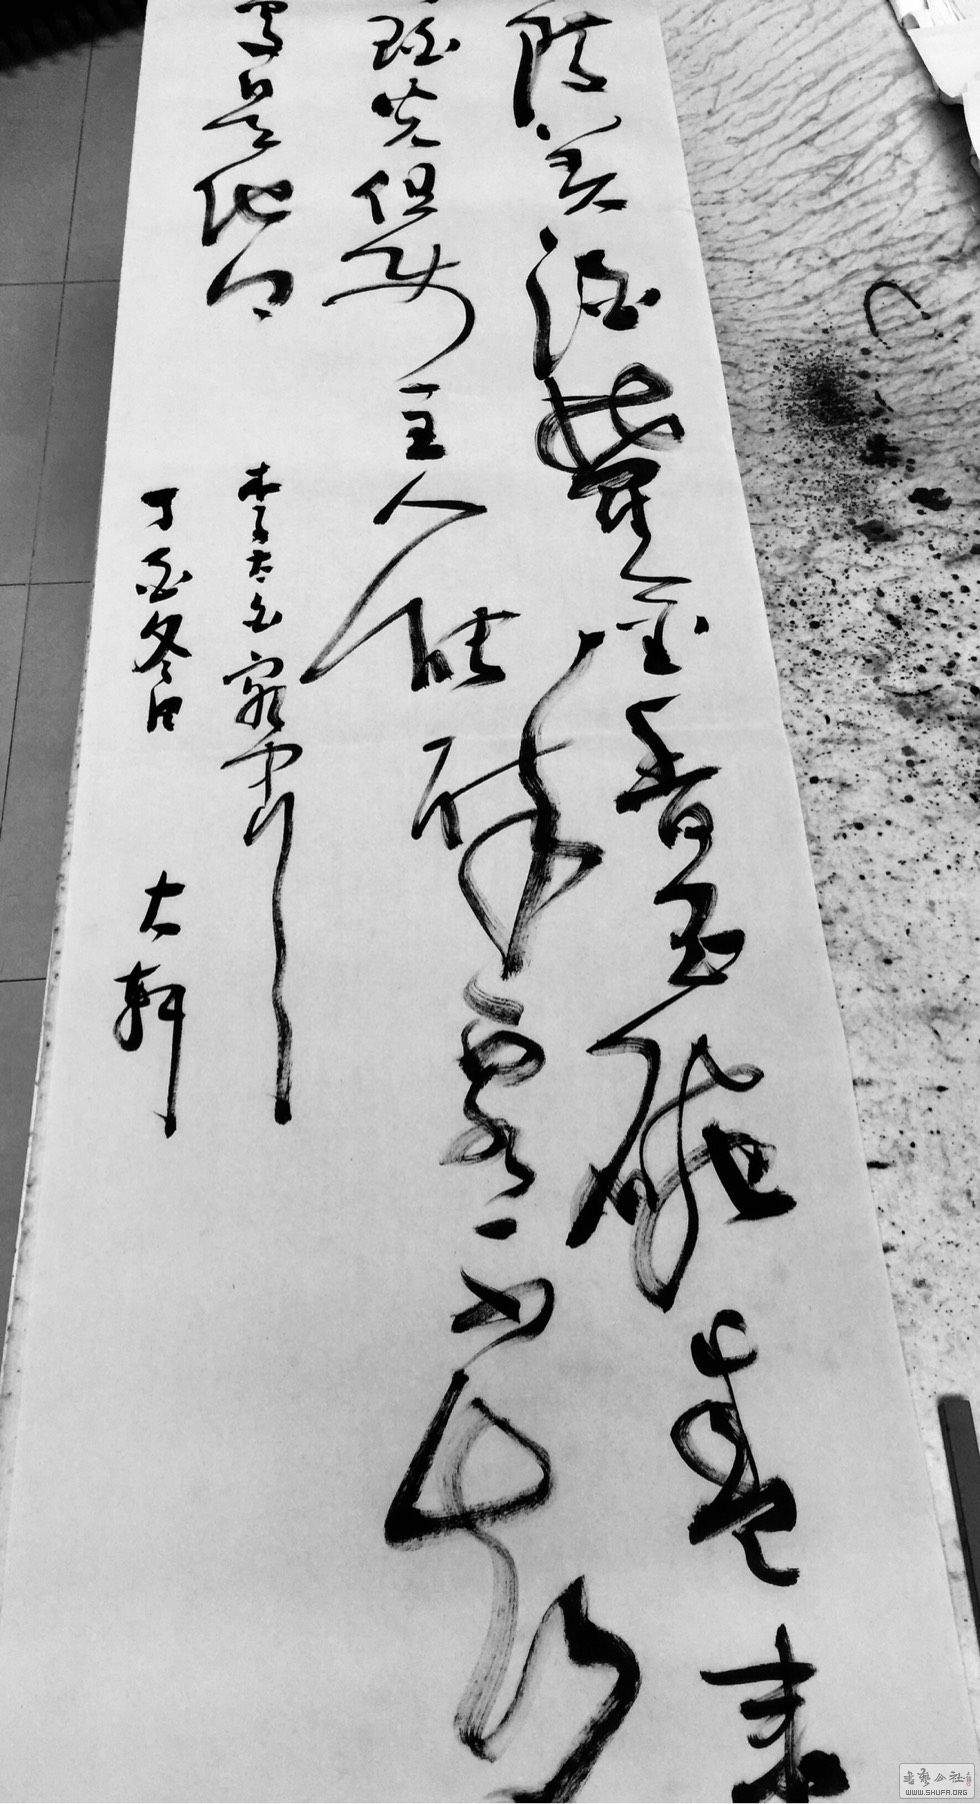 陵美酒鬱金香玉碗盛来
珀光但使主人能醉客不知何
處是他乡
李太白客中行
丁酉冬日 大軒
書藝公社
WWW.SHUFA.ORG